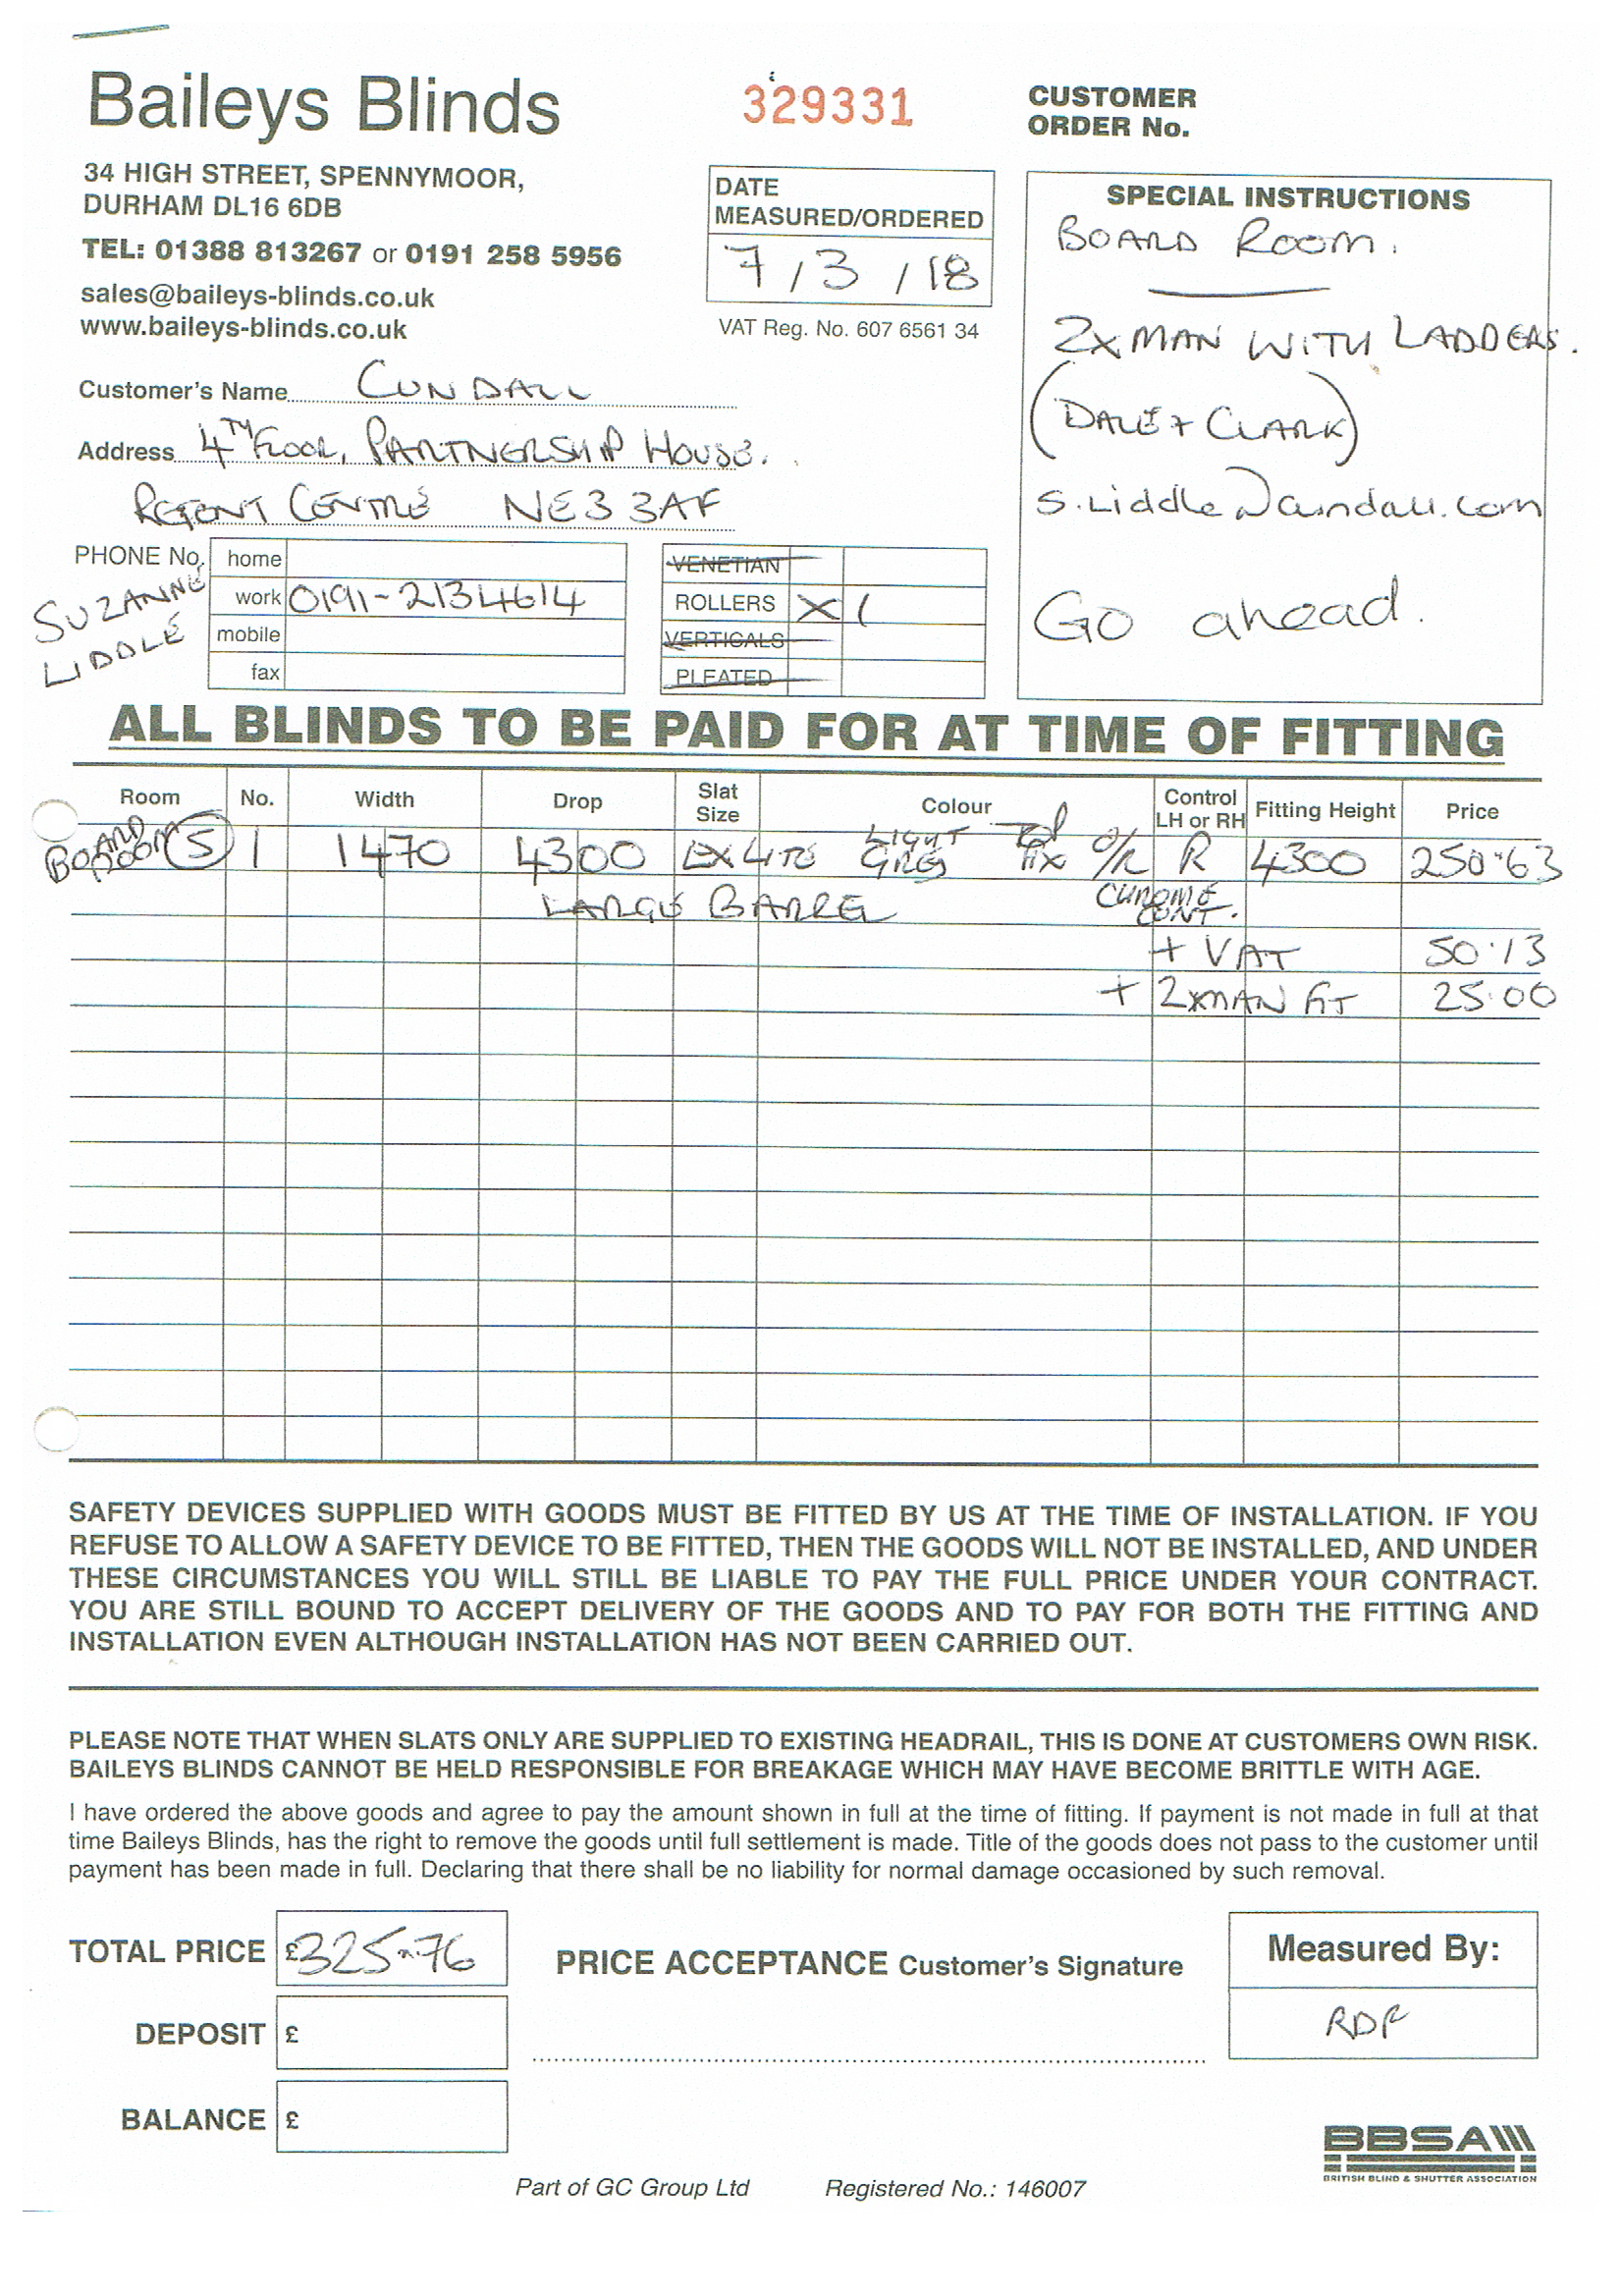 Baileys Blinds
329331
CUSTOMER
ORDER No.
34 HIGH STREET, SPENNYMOOR,
DURHAM DL16 6DB
TEL: 01388 813267 or 0191 258 5956
sales@baileys-blinds.co.uk
www.baileys-blinds.co.uk
DATE
MEASURED/ORDERED
7/3/18
VAT Reg. No. 607 6561 34
SPECIAL INSTRUCTIONS
BOARD ROOM.
2X MAN WITH LADDERS.
(DALE + CLARK)
S.Liddle@cundall.com
Go ahead.
Customer's Name CUNDALL
Address 4TH FLOOR, PARTNERSHIP HOUSE.
REGENT CENTRE NE3 3AF
PHONE No.
SUZANNE
LIDDLE
home
work 0191-2134614
mobile
fax
VENETIAN
ROLLERS X 1
VERTICALS
PLEATED
ALL BLINDS TO BE PAID FOR AT TIME OF FITTING
Room No. Width Drop Slat Size Colour Control LH or RH Fitting Height Price
BOARD ROOM (S) 1 1470 4300 EX LITE LIGHT GREY FIX O/R R 4300 250.63
LARGE BARREL CHROME CONT.
+ VAT 50.13
+ 2XMAN FIT 25.00
SAFETY DEVICES SUPPLIED WITH GOODS MUST BE FITTED BY US AT THE TIME OF INSTALLATION. IF YOU
REFUSE TO ALLOW A SAFETY DEVICE TO BE FITTED, THEN THE GOODS WILL NOT BE INSTALLED, AND UNDER
THESE CIRCUMSTANCES YOU WILL STILL BE LIABLE TO PAY THE FULL PRICE UNDER YOUR CONTRACT.
YOU ARE STILL BOUND TO ACCEPT DELIVERY OF THE GOODS AND TO PAY FOR BOTH THE FITTING AND
INSTALLATION EVEN ALTHOUGH INSTALLATION HAS NOT BEEN CARRIED OUT.
PLEASE NOTE THAT WHEN SLATS ONLY ARE SUPPLIED TO EXISTING HEADRAIL, THIS IS DONE AT CUSTOMERS OWN RISK.
BAILEYS BLINDS CANNOT BE HELD RESPONSIBLE FOR BREAKAGE WHICH MAY HAVE BECOME BRITTLE WITH AGE.
I have ordered the above goods and agree to pay the amount shown in full at the time of fitting. If payment is not made in full at that
time Baileys Blinds, has the right to remove the goods until full settlement is made. Title of the goods does not pass to the customer until
payment has been made in full. Declaring that there shall be no liability for normal damage occasioned by such removal.
TOTAL PRICE £325.76
PRICE ACCEPTANCE Customer's Signature
Measured By:
RDF
DEPOSIT £
BALANCE £
BBSA
BRITISH BLIND & SHUTTER ASSOCIATION
Part of GC Group Ltd Registered No.: 146007